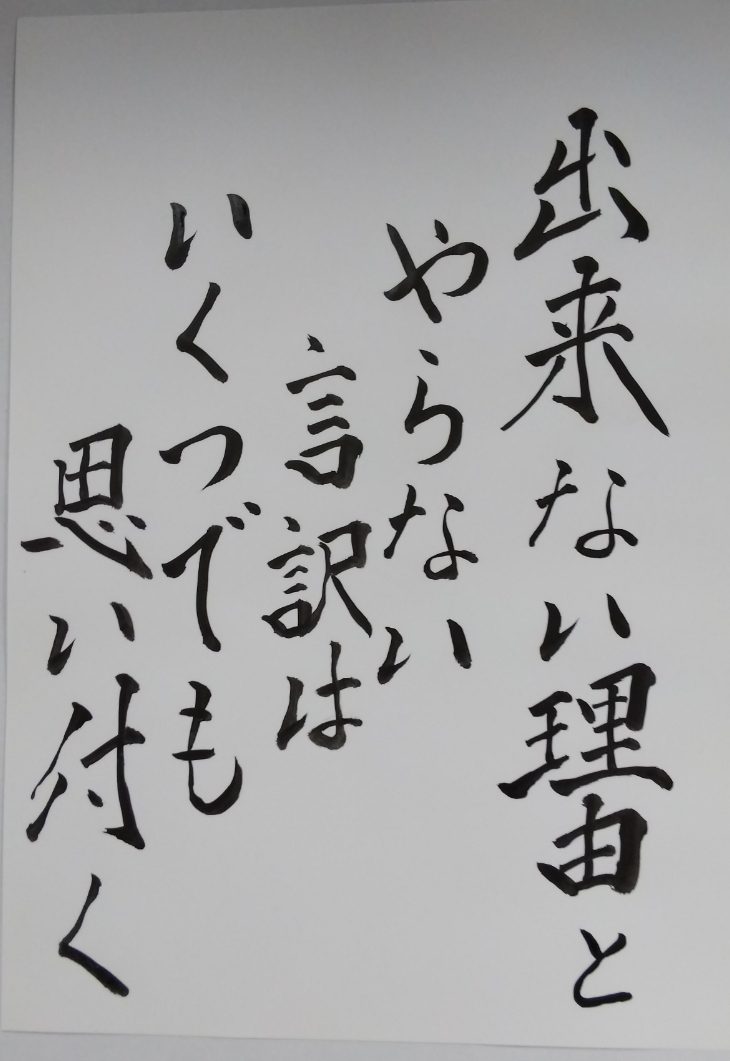 出来ない理由と
やらない
言訳は
いくつでも
思い付く